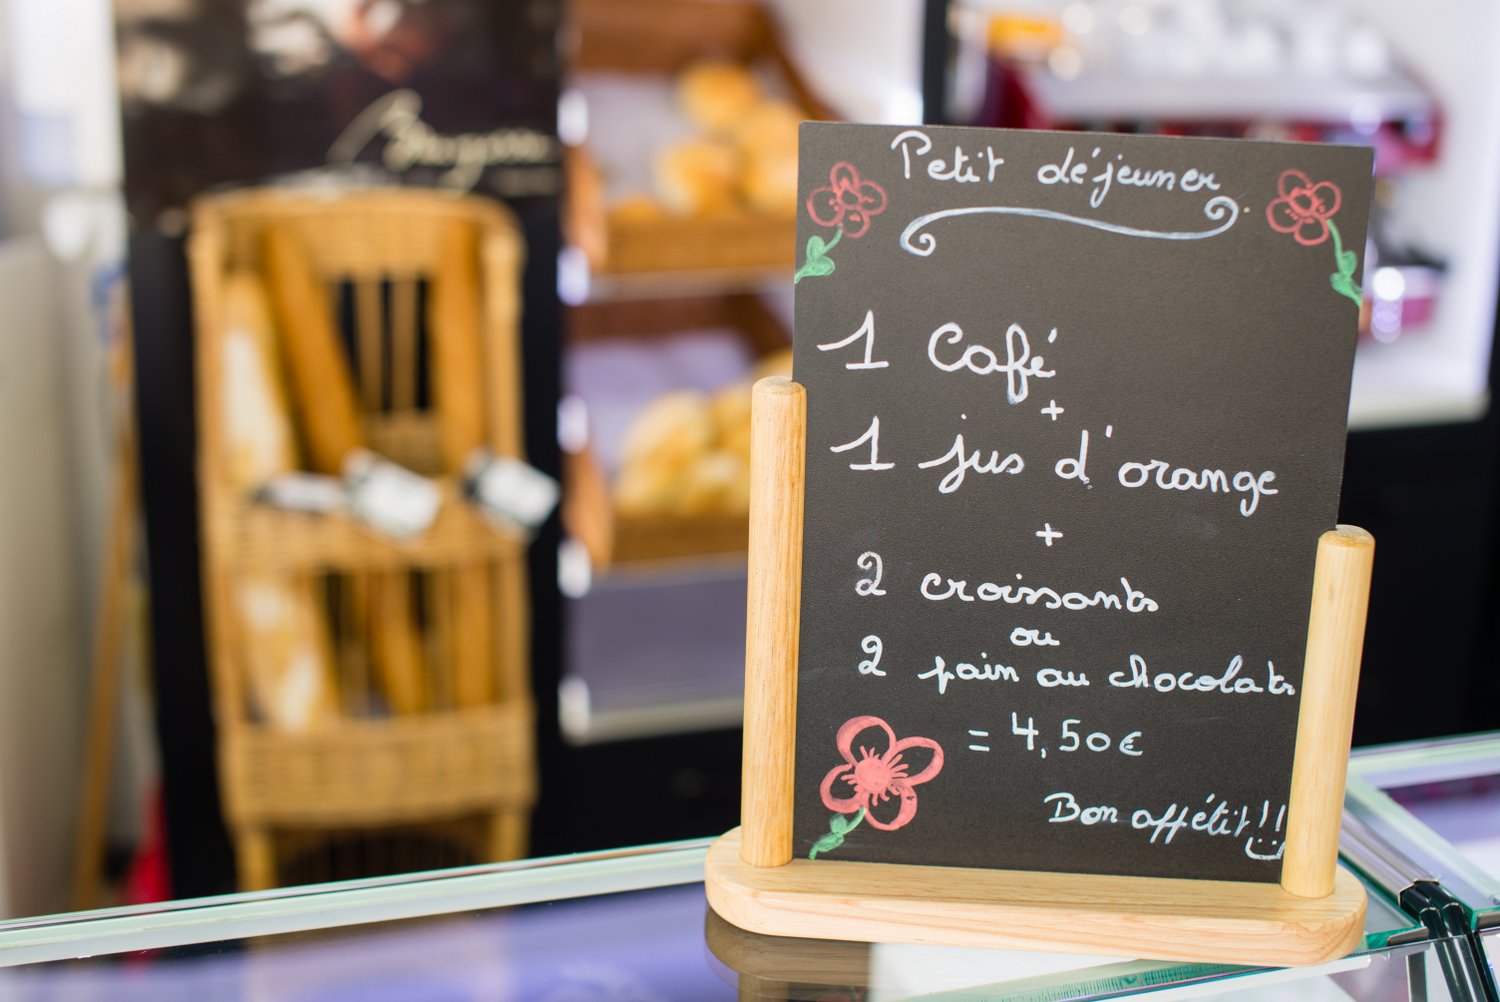 Petit déjeuner
1 Café
+
1 jus d'orange
+
2 croissants
ou
2 pain au chocolats
= 4,50€
Bon appétit!!